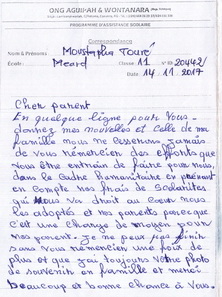 ONG AGUIPAH & WONTANARA
PROGRAMME D'ASSISTANCE SCOLAIRE
Correspondance
Nom & Prénoms : Moustapha Touré
École : Meard Classe : 11 N° 20442/
Date : 14.11.2017
Cher parent
En quelque ligne pour vous
donnez mes nouvelles et celle de ma
famille nous ne cesserons jamais
de vous rémercier des efforts que
vous être entrain de faire pour nous
dans le cadre humanitaire en prenant
en compte nos frais de scolarités
qui nous va droit au cœur nous
les adoptés et nos parents parceque
c'est une charge de moyen pour
nos parent. Je ne peux pas finir
sans vous rémercier une fois de
plus et que j'ai toujours votre photo
de souvenir en famille et merci
beaucoup et bonne chance à Vous.